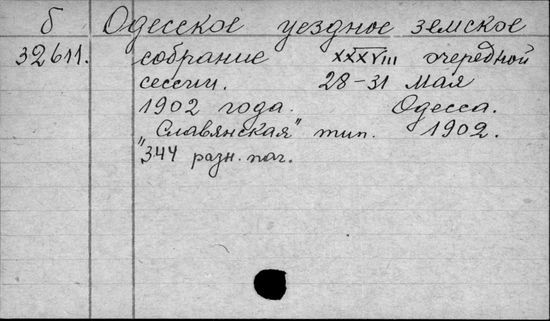 б Одесское уездное земское
32611. собрание XXXVIII очередной
сессии. 28-31 мая
1902 года. Одесса.
"Славянская" тип. 1902.
344 разн. паг.